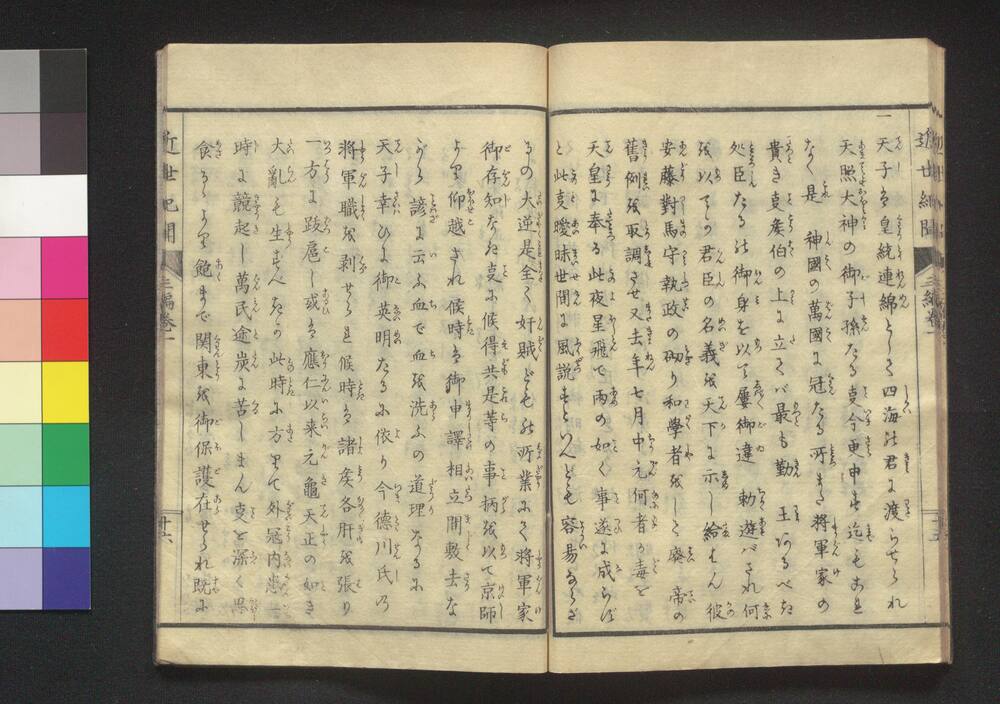 一 天子は皇統連綿として四海の君に渡らせられ
天照大神の御子孫たる事今更申も迄もこれ
なく是 神國の萬國に冠たる所また将軍家の
貴き矦伯の上に立てバ最も勤 王あるべき
処臣たるの御身を以て屢御違 勅遊バされ何
を以ての君臣の名義を天下に示し給はん彼
安藤對馬守執政の砌り和學者をして廢 帝の
舊例を取調させ又去年七月中元何者か毒を
天皇に奉る此夜星飛で雨の如く事遂に成らず
と此事曖昧世間に風説すといへども容易ならざ
るの大逆是全く奸賊どもの所業にて将軍家
御存知なき事に候得共是等の事柄を以て京師
より仰越され候時は御申譯相立間敷去な
がら諺に云ふ血で血を洗ふの道理なるに
天子幸ひに御英明たるに依り今徳川氏の
将軍職を剥せられ候時は諸矦各肝を張り
一方に跋扈し或は應仁以来元龜天正の如き
大亂を生ずべきか此時に方りて外冦内患一
時に競起し萬民途炭に苦しまん事を深く思
食るゝより飽まで関東を御保護在せられ既に
近世紀聞
三編巻一
廿六